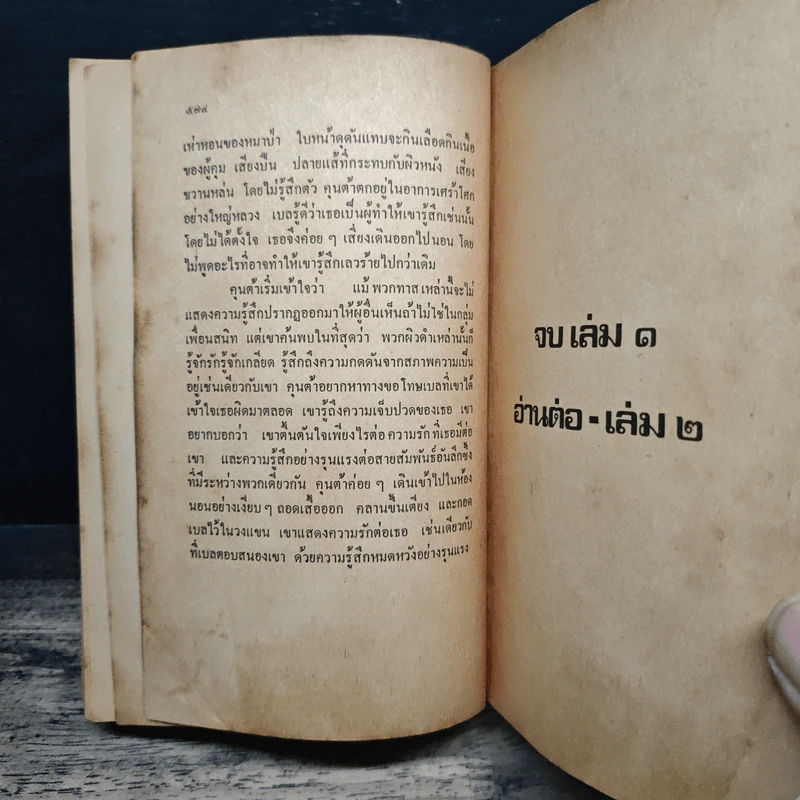 ๕๗๙
เห่าหอนของหมาป่า ใบหน้าดุดันแทบจะกินเลือดกินเนื้อ
ของผู้คุม เสียงปืน ปลายแส้ที่กระทบกับผิวหนัง เสียง
ขวานหล่น โดยไม่รู้สึกตัว คุนต้าตกอยู่ในอาการเศร้าโศก
อย่างใหญ่หลวง เบลรู้ดีว่าเธอเป็นผู้ทำให้เขารู้สึกเช่นนั้น
โดยไม่ได้ตั้งใจ เธอจึงค่อย ๆ เลี่ยงเดินออกไปนอน โดย
ไม่พูดอะไรที่อาจทำให้เขารู้สึกเลวร้ายไปกว่าเดิม
คุนต้าเริ่มเข้าใจว่า แม้ พวกทาสเหล่านี้จะไม่
แสดงความรู้สึกปรากฏออกมาให้ผู้อื่นเห็นถ้าไม่ใช่ในกลุ่ม
เพื่อนสนิท แต่เขาค้นพบในที่สุดว่า พวกผิวดำเหล่านั้นก็
รู้จักรักรู้จักเกลียด รู้สึกถึงความกดดันจากสภาพความเป็น
อยู่เช่นเดียวกับเขา คุนต้าอยากหาทางขอโทษเบลที่เขาได้
เข้าใจเธอผิดมาตลอด เขารู้ถึงความเจ็บปวดของเธอ เขา
อยากบอกว่า เขาตื้นตันใจเพียงไรต่อ ความรัก ที่เธอมีต่อ
เขา และความรู้สึกอย่างรุนแรงต่อสายสัมพันธ์อันลึกซึ้ง
ที่มีระหว่างพวกเดียวกัน คุนต้าค่อย ๆ เดินเข้าไปในห้อง
นอนอย่างเงียบ ๆ ถอดเสื้อออก คลานขึ้นเตียง และกอด
เบลไว้ในวงแขน เขาแสดงความรักต่อเธอ เช่นเดียวกับ
ที่เบลตอบสนองเขา ด้วยความรู้สึกหมดหวังอย่างรุนแรง
จบ เล่ม ๑
อ่านต่อ - เล่ม ๒